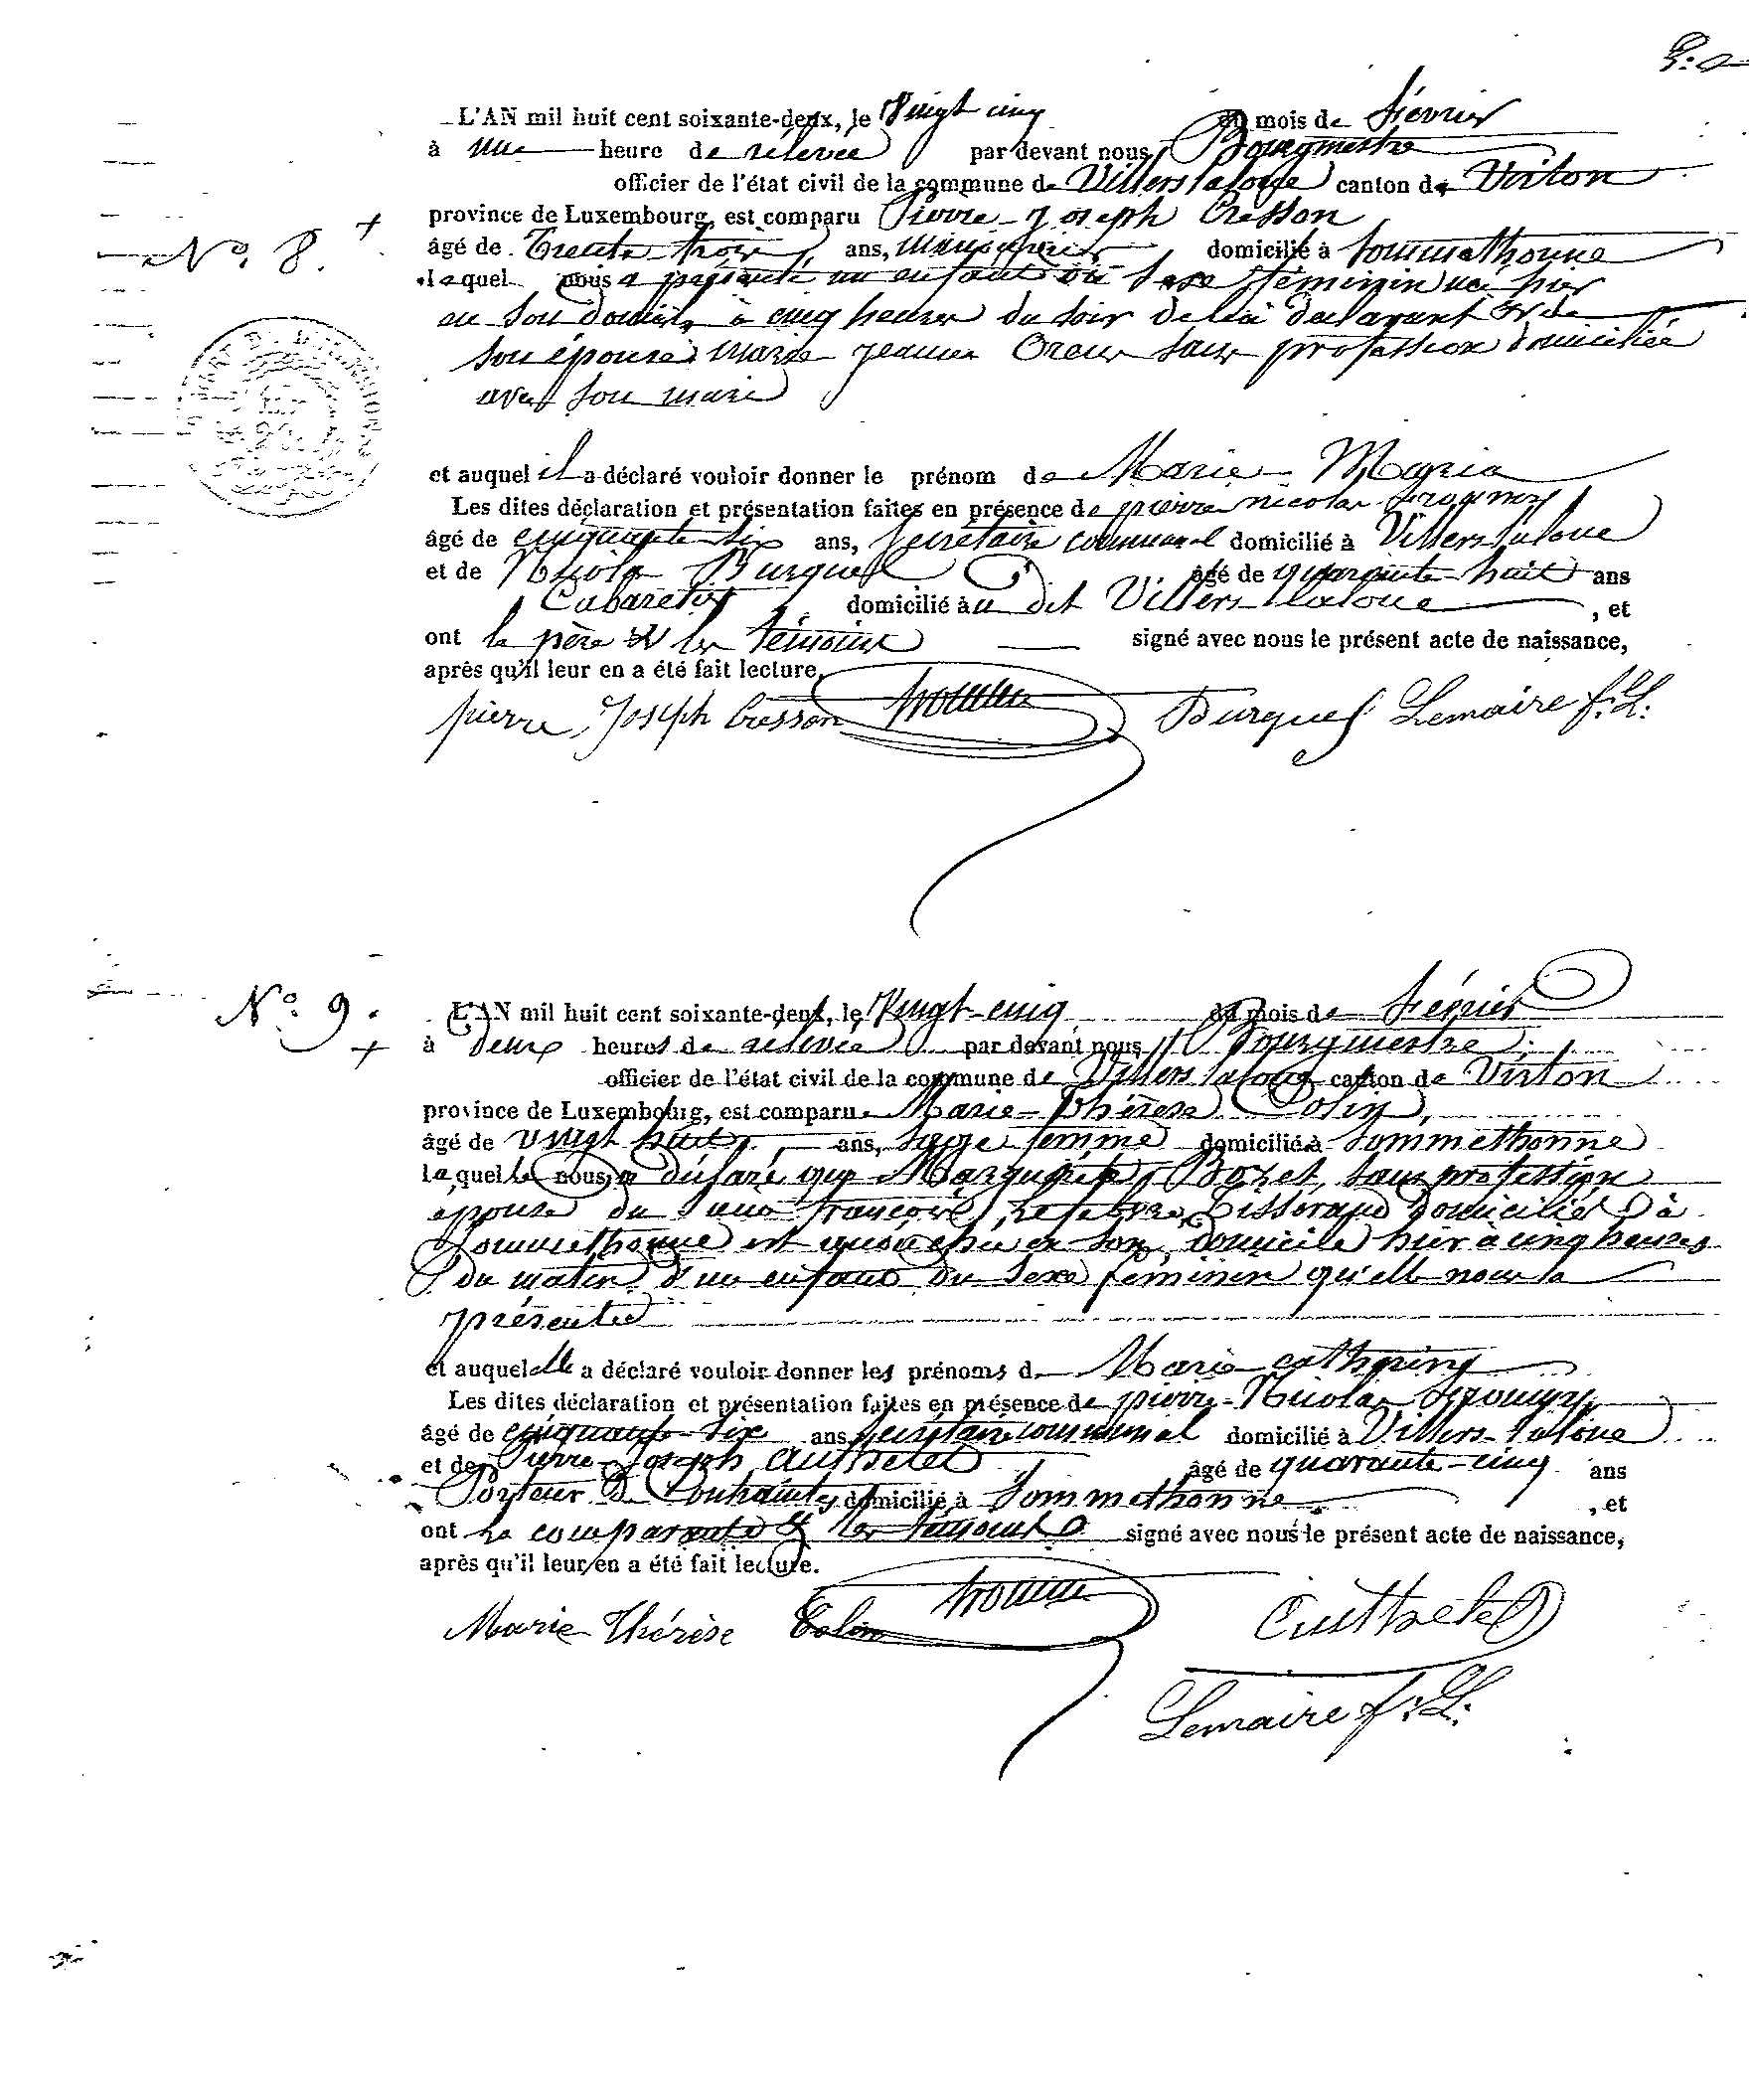 L'AN mil huit cent soixante-deux, le Vingt cinq du mois de février
à une heure de rélévée par devant nous Bourgmestre
officier de l'état civil de la commune de Villers laloue canton de Virton
province de Luxembourg, est comparu Pierre-Joseph Cresson
N° 8. +
âgé de Trente-trois ans, manœuvre domicilié à Sommethonne
lequel nous a présenté un enfant du sexe féminin né hier
en son domicile à cinq heures du soir de lui déclarant et de
son épouse marie jeanne sans profession domiciliée
avec son mari
et auquel il a déclaré vouloir donner le prénom de Marie-Maria
Les dites déclaration et présentation faites en présence de pierre nicolas
âgé de cinquante-six ans, secrétaire communal domicilié à Villers-laloue
et de Nicolas Burquel âgé de quarante-huit ans
Cabaretier domicilié à u dit Villers-laloue , et
ont le père et les témoins signé avec nous le présent acte de naissance,
après qu'il leur en a été fait lecture.
pierre Joseph Cresson Burquel Lemaire f.L.
N° 9. +
L'AN mil huit cent soixante-deux, le Vingt-cinq du mois de février
à deux heures de rélévée par devant nous Bourgmestre
officier de l'état civil de la commune de Villers laloue canton de Virton
province de Luxembourg, est comparu Marie-Thérèse Colin,
âgé de vingt huit ans, sage femme domicilié à Sommethonne
laquelle nous a déclaré que Marguerite Bozet, sans profession
épouse du sieur françois Lefebvre, Tisserand domiciliés à
Sommethonne est accouchée en son domicile hier à cinq heures
du matin d'un enfant du sexe féminin qu'elle nous a
présenté
et auquel elle a déclaré vouloir donner les prénoms de Marie-catherine
Les dites déclaration et présentation faites en présence de pierre-Nicolas
âgé de cinquante-six ans secrétaire communal domicilié à Villers-laloue
et de Pierre-Joseph Authelet âgé de quarante-cinq ans
Porteur de Contraintes domicilié à Sommethonne , et
ont la comparante et les témoins signé avec nous le présent acte de naissance,
après qu'il leur en a été fait lecture.
Marie Thérèse Colin Authelet
Lemaire f.L.